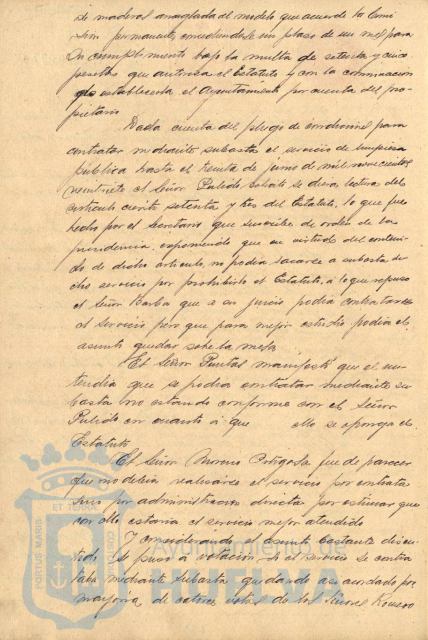 de madera arreglada al modelo que acuerde la Comi
sión permanente, concediéndose un plazo de un mes para
su cumplimiento bajo la multa de setenta y cinco
pesetas que autoriza el Estatuto y con la conminación
de establecerla el Ayuntamiento por cuenta del pro-
pietario.
Dada cuenta del pliego de condiciones para
contratar mediante subasta el servicio de limpieza
pública hasta el treinta de junio de mil novecientos
veintisiete el Señor Pulido solicitó se diera lectura del
artículo ciento setenta y tres del Estatuto, lo que fue
hecho por el Secretario que suscribe de orden de la
presidencia, exponiendo que en virtud del conteni-
do de dicho artículo, no podía sacarse a subasta di-
cho servicio por prohibirlo el Estatuto, a lo que repuso
el Señor Barba que a su juicio podía contratarse
el servicio pero que para mejor estudio podía el
asunto quedar sobre la mesa.
El Señor manifestó que él en-
tendía que se podría contratar mediante su
basta no estando conforme con el Señor
Pulido en cuanto a que ello se oponga el
Estatuto.
El Señor Moreno Ortigosa fue de parecer
que no debía realizarse el servicio por contrata
sino por administración directa por estimar que
con ello estaría el servicio mejor atendido
Y considerando el asunto bastante discu
tido se puso a votación si el servicio se contra
taba mediante subasta quedando así acordado por
mayoría, de catorce votos de los Señores Romero
Ayuntamiento de
HUELVA
PORTUS MARIS ET TERRAE CUSTODIA